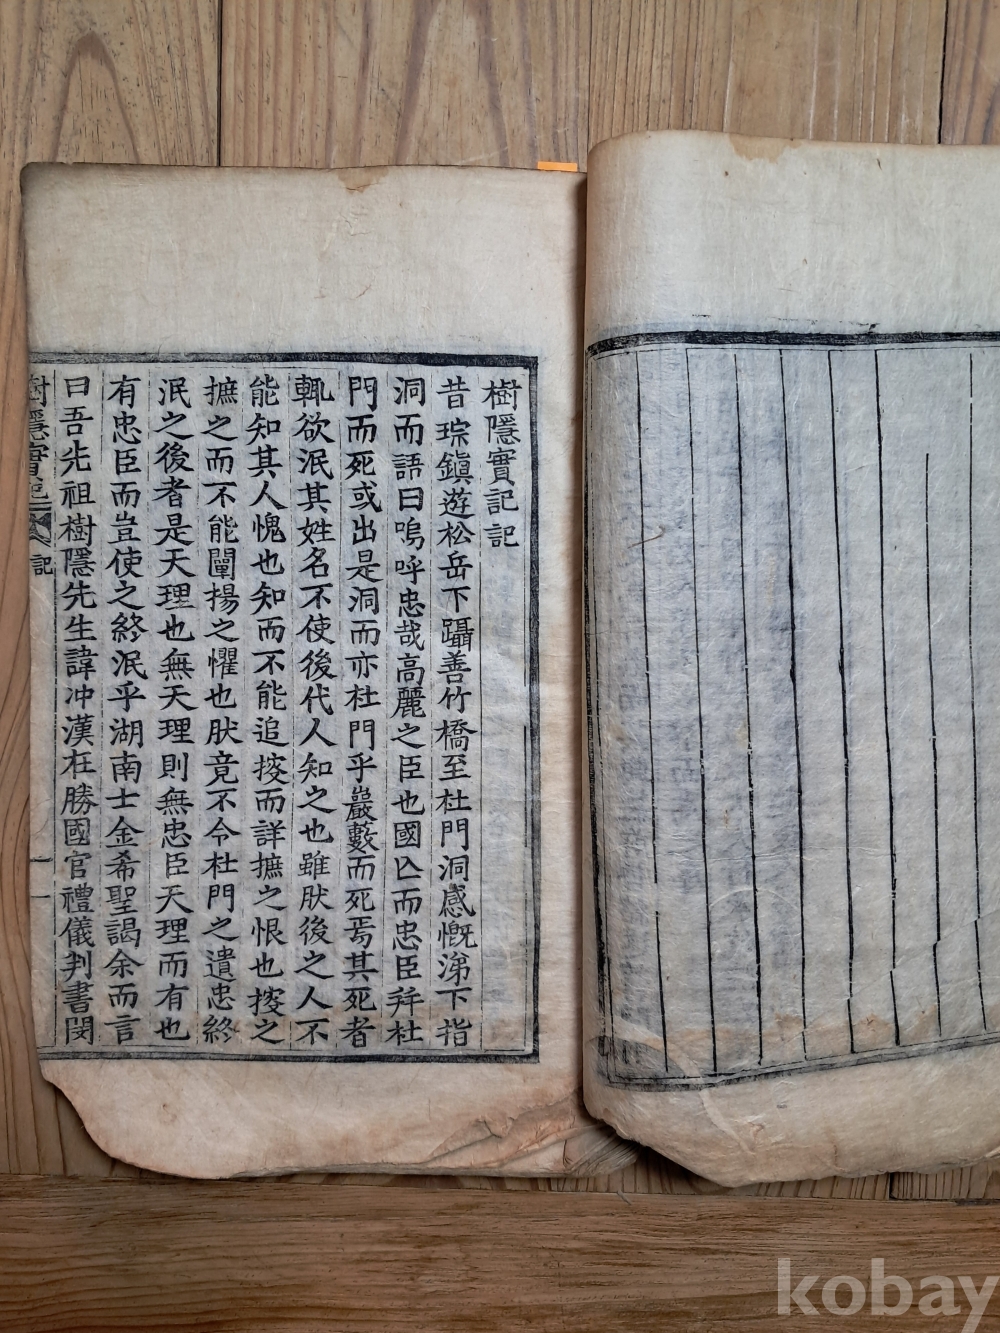 樹隱實記記
昔琮鎭遊松岳下躡善竹橋至杜門洞感慨涕下指
洞而語曰嗚呼忠哉高麗之臣也國亾而忠臣幷杜
門而死或出是洞而亦杜門乎巖藪而死焉其死者
輒欲泯其姓名不使後代人知之也雖肰後之人不
能知其人愧也知而不能追㨏而詳摭之恨也㨏之
摭之而不能闡揚之懼也肰竟不令杜門之遺忠終
泯之後者是天理也無天理則無忠臣天理而有也
有忠臣而豈使之終泯乎湖南士金希聖謁余而言
曰吾先祖樹隱先生諱冲漢在勝國官禮儀判書閔
樹隱實記 記 一
kobay